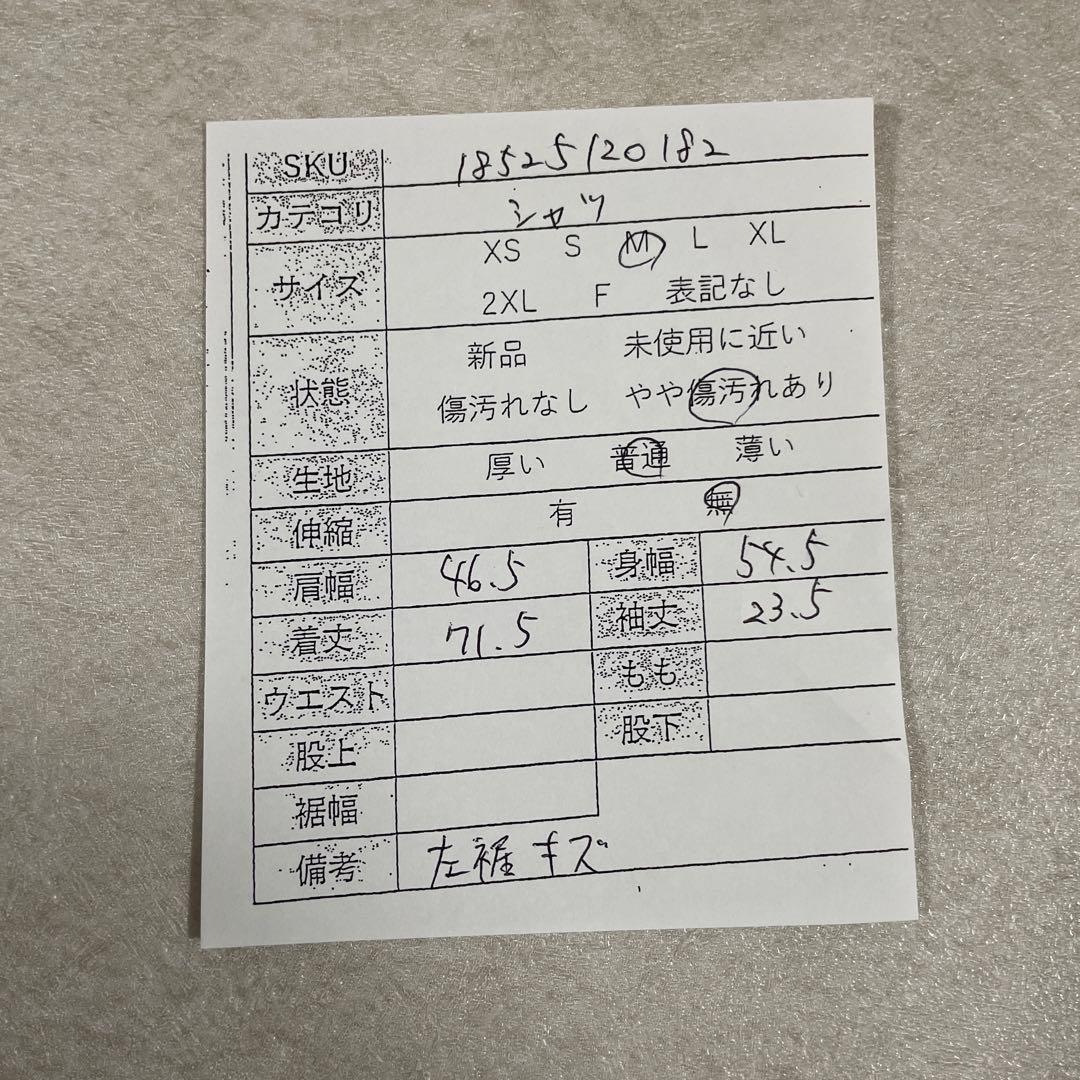 SKU 18525120182
カテゴリ シャツ
サイズ XS S M L XL
2XL F 表記なし
状態 新品 未使用に近い
傷汚れなし やや傷汚れあり
生地 厚い 普通 薄い
伸縮 有 無
肩幅 46.5 身幅 54.5
着丈 71.5 袖丈 23.5
ウエスト もも
股上 股下
裾幅
備考 左裾キズ